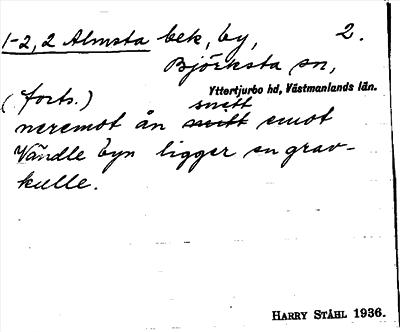 1-2,2 Almsta bek, by, 2.
Björksta sn,
Yttertjurbo hd, Västmanlands län.
(forts.)
snett
neremot ån snitt emot
Vändle byn ligger en grav-
kulle.
HARRY STÅHL 1936.